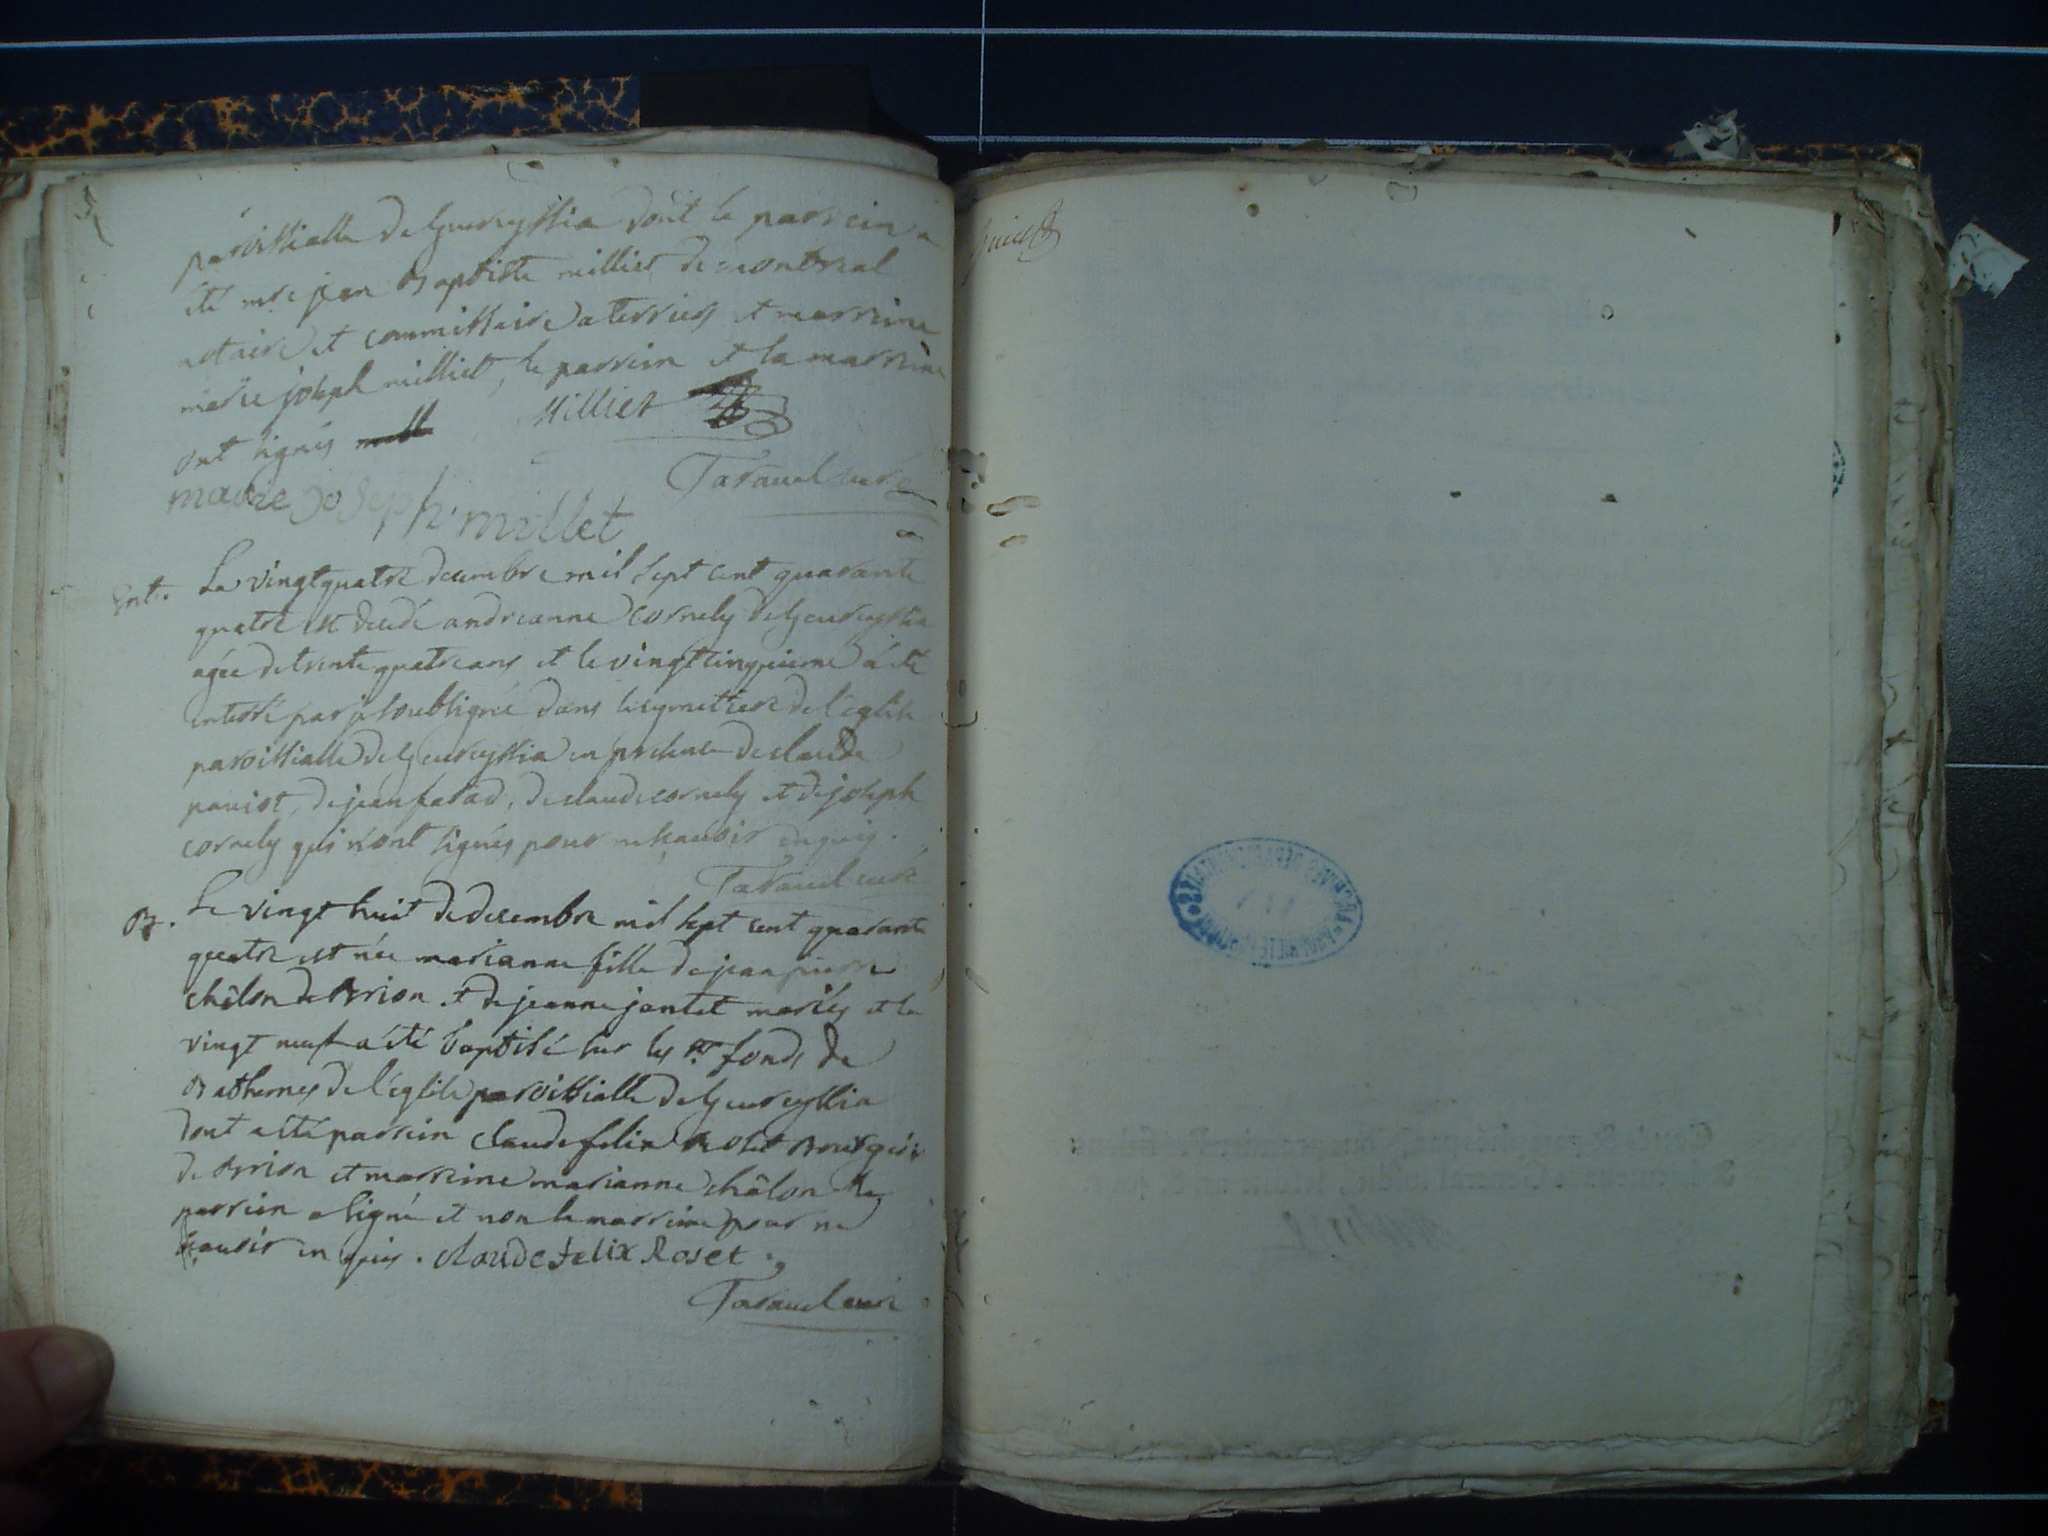 paroissialle de Geureyssia dont le parrein a
été mre jean Baptiste milliet de montreal
notaire et commissaire a terriers et marreine
marie joseph milliet, le parrein et la marreine
ont signés
Milliet
Taravel curé
marie joseph millet
Ent. Le vingtquatre decembre mil sept cent quarante
quatre est decédé andreanne cornely de Geureyssia
agée de trente quatre ans et le vingtcinquieme a été
enterré par je soubsigné dans le cymetiere de l'eglise
paroissialle de Geureyssia en presence de claude
paviot, de jean favad, de claude cornely et de joseph
cornely qui n'ont signés pour ne sçavoir enquis.
Taravel curé
B. Le vingt huit de decembre mil sept cent quarante
quatre est née marianne fille de jean pierre
châlon de Brion et de jeanne jantet mariés et le
vingt neuf a été baptisé sur les fonds de
Bathemes de l'eglise paroissialle de Geureyssia
dont a été parrein claude felix Roset Bourgeois
de Brion et marreine marianne châlon le
parrein a signé et non la marreine pour ne
sçavoir enquis. claude felix Roset
Taravel curé